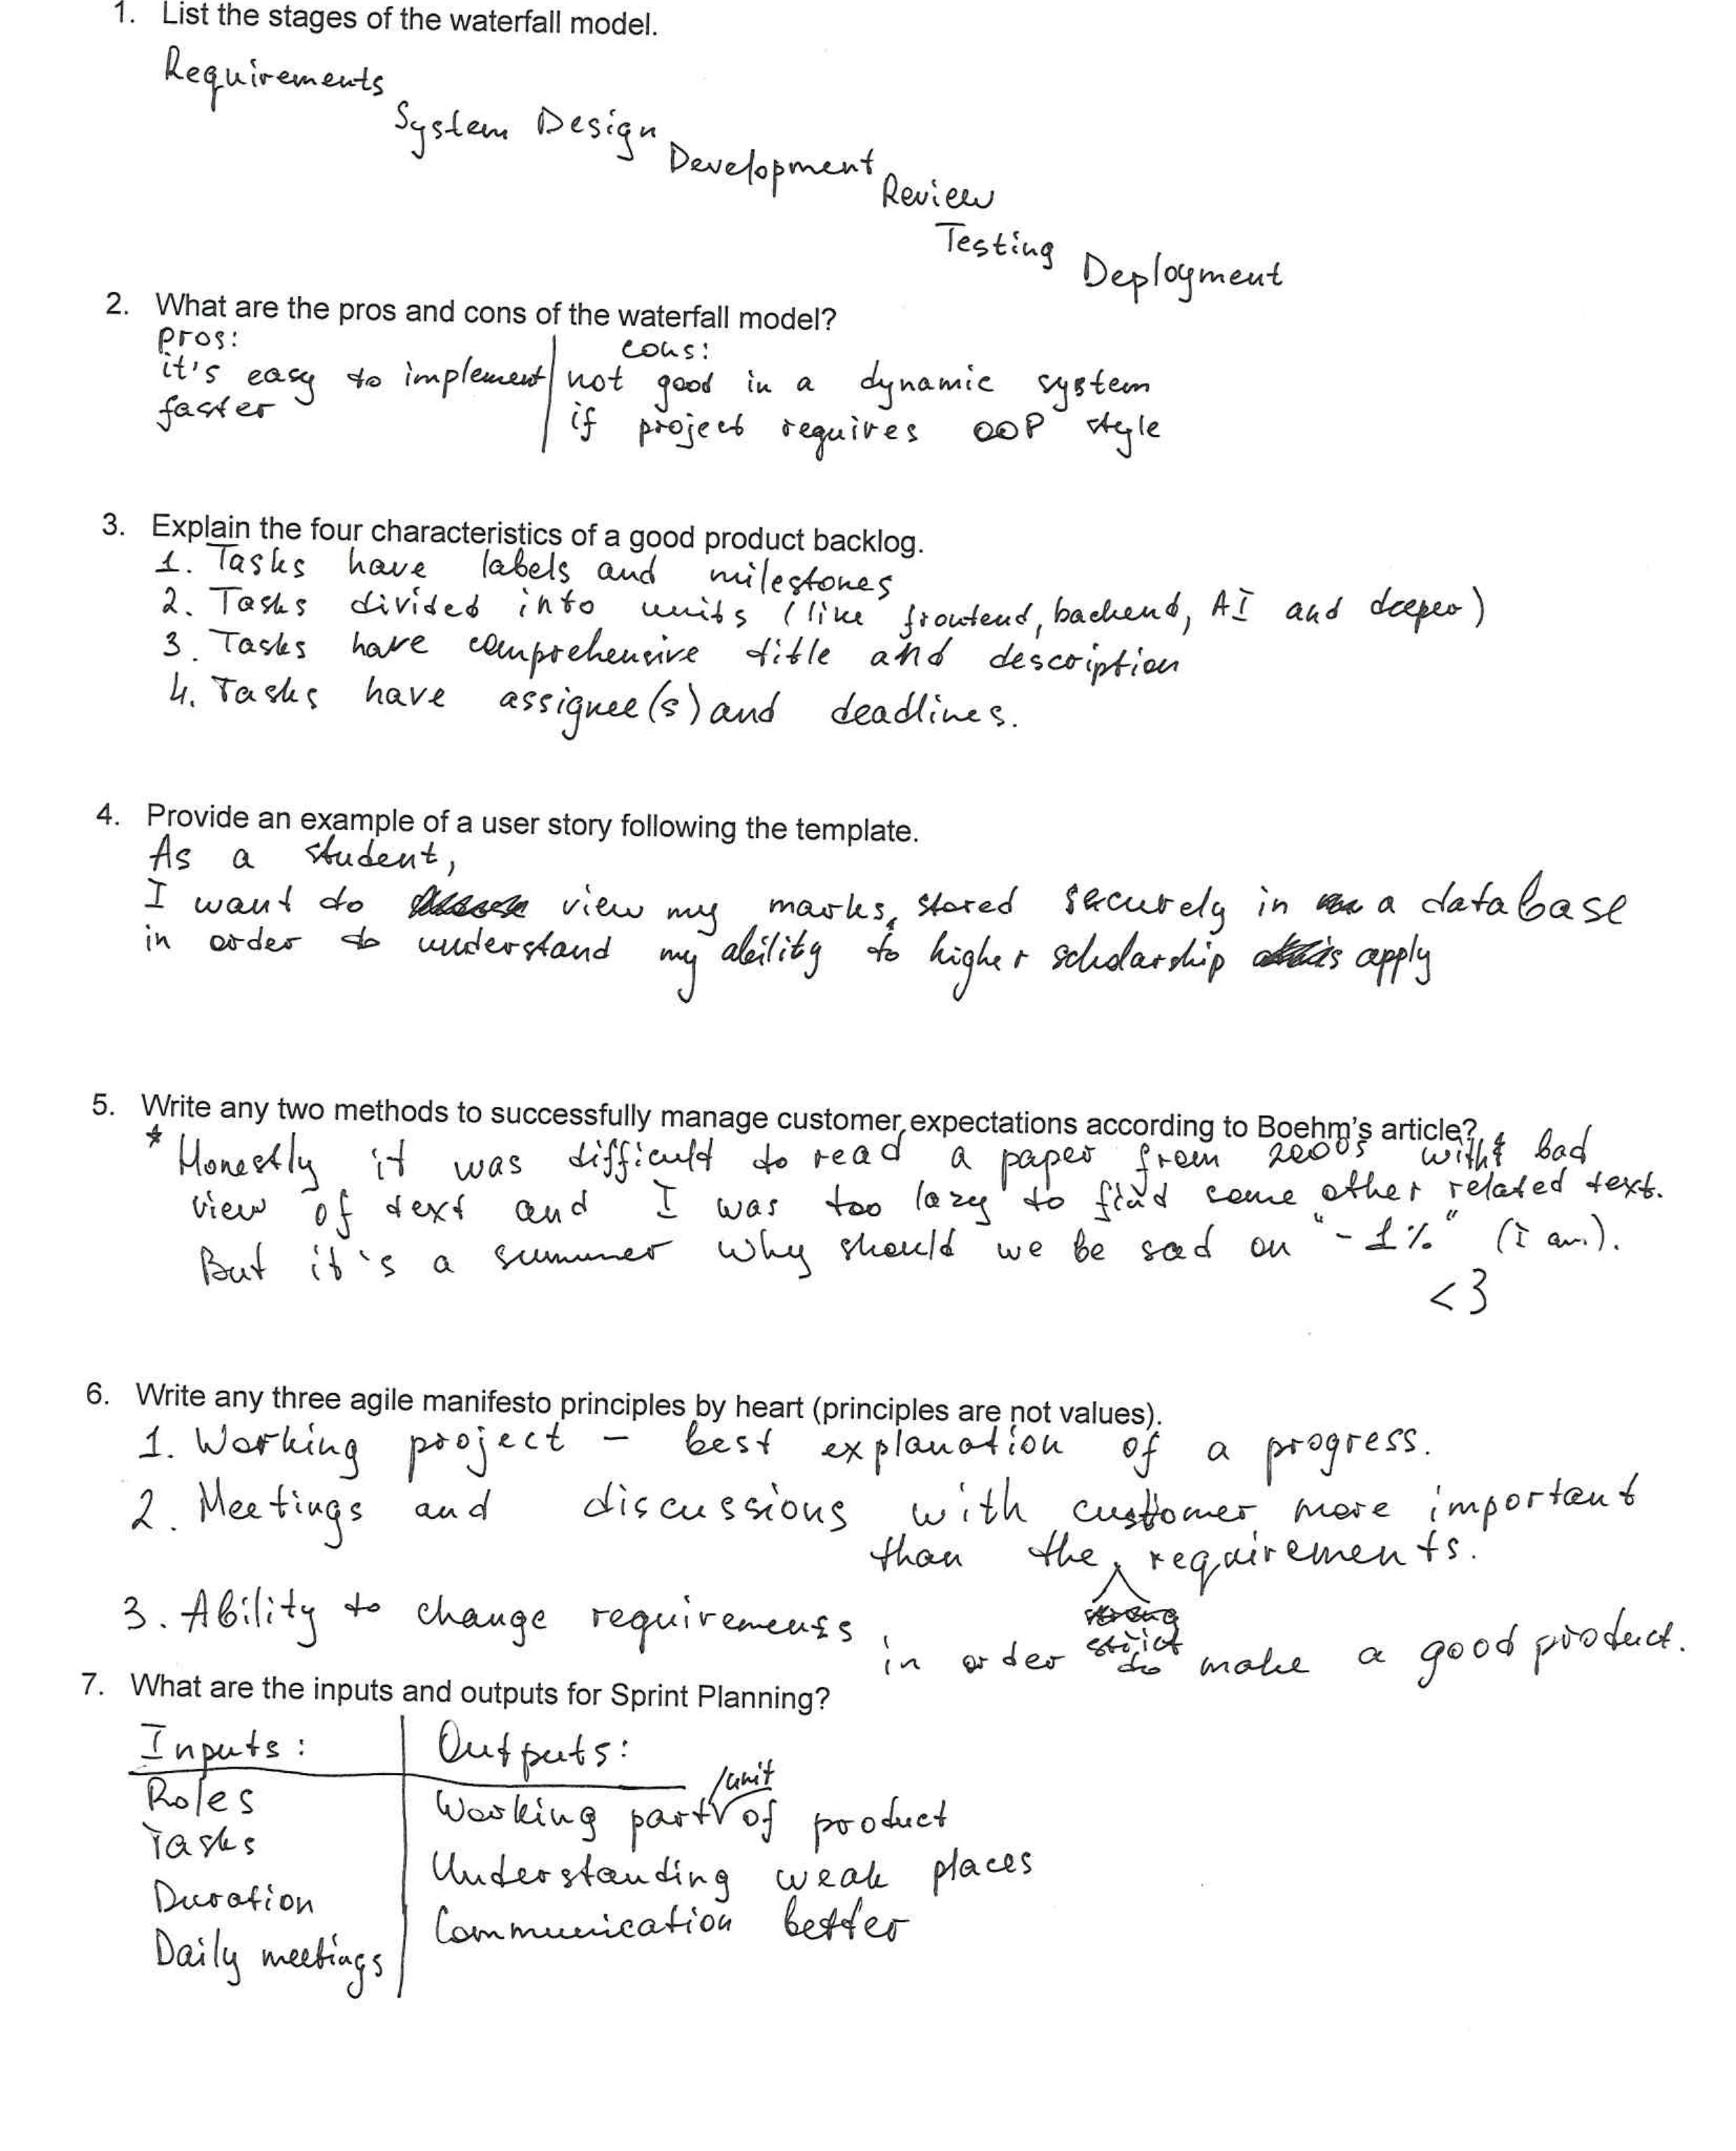 1. List the stages of the waterfall model.
Requirements
System Design
Development
Review
Testing
Deployment
2. What are the pros and cons of the waterfall model?
pros:
it's easy to implement
faster
cons:
not good in a dynamic system
if project requires OOP style
3. Explain the four characteristics of a good product backlog.
1. Tasks have labels and milestones
2. Tasks divided into units (like frontend, backend, AI and deeper)
3. Tasks have comprehensive title and description
4. Tasks have assignee(s) and deadlines.
4. Provide an example of a user story following the template.
As a student,
I want to view my marks, stored securely in a database
in order to understand my ability to higher scholarship apply
5. Write any two methods to successfully manage customer expectations according to Boehm's article?
* Honestly, it was difficult to read a paper from 2000's with bad
view of text and I was too lazy to find some other related text.
But it's a summer why should we be sad on "-1%" (I am).
<3
6. Write any three agile manifesto principles by heart (principles are not values).
1. Working project - best explanation of a progress.
2. Meetings and discussions with customer more important
than the strict requirements.
3. Ability to change requirements in order to make a good product.
7. What are the inputs and outputs for Sprint Planning?
Inputs:
Roles
Tasks
Duration
Daily meetings
Outputs:
Working part/unit of product
Understanding weak places
Communication better